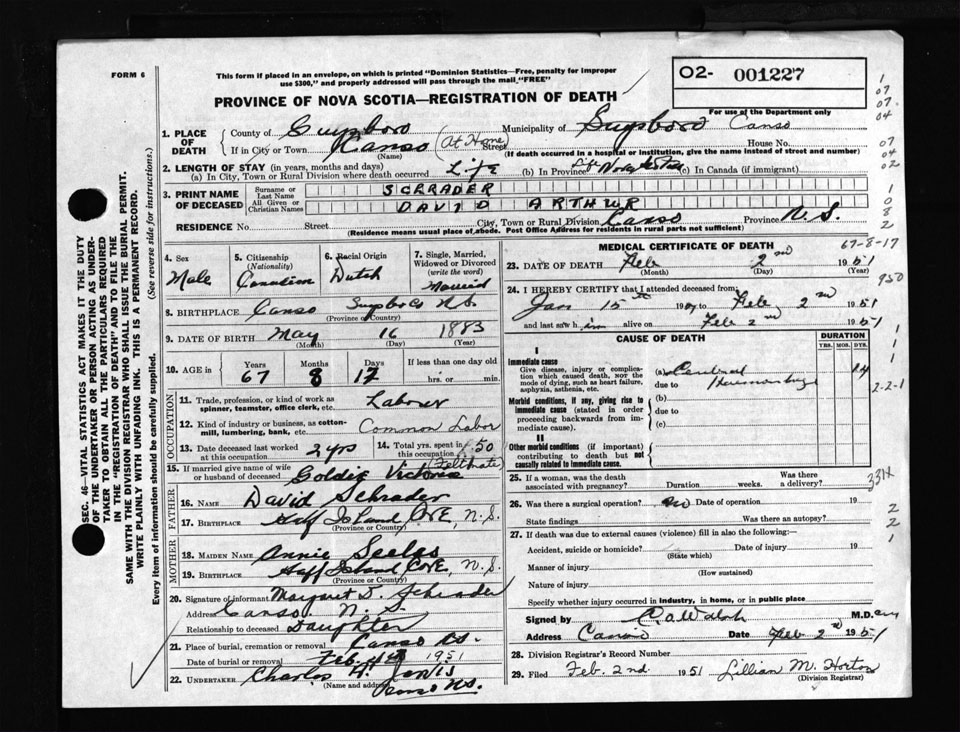 FORM 6
This form if placed in an envelope, on which is printed "Dominion Statistics—Free, penalty for improper
use $300," and properly addressed will pass through the mail "FREE"
O2- 001227
For use of the Department only
PROVINCE OF NOVA SCOTIA—REGISTRATION OF DEATH
1. PLACE OF DEATH
County of Guysboro Municipality of Guysboro Canso
If in City or Town Canso (At Home) Street House No.
(Name) (If death occurred in a hospital or institution, give the name instead of street and number)
2. LENGTH OF STAY (in years, months and days)
(a) In City, Town or Rural Division where death occurred Life (b) In Province Life Nova Scotia (c) In Canada (if immigrant)
3. PRINT NAME OF DECEASED
Surname or Last Name SCHRADER
All Given or Christian Names DAVID ARTHUR
RESIDENCE No. Street City, Town or Rural Division Canso Province N.S.
(Residence means usual place of abode. Post Office Address for residents in rural parts not sufficient)
4. Sex Male
5. Citizenship (Nationality) Canadian
6. Racial Origin Dutch
7. Single, Married, Widowed or Divorced (write the word) Married
8. BIRTHPLACE Canso Guysboro Co N.S.
(Province or Country)
9. DATE OF BIRTH May 16 1883
(Month) (Day) (Year)
10. AGE in Years Months Days If less than one day old
67 8 17 hrs. or min.
OCCUPATION
11. Trade, profession, or kind of work as spinner, teamster, office clerk, etc. Laborer
12. Kind of industry or business, as cotton-mill, lumbering, bank, etc. Common Labor
13. Date deceased last worked at this occupation 2 yrs
14. Total yrs. spent in this occupation 50
15. If married give name of wife or husband of deceased Goldie Victoria Feltmate
FATHER
16. Name David Schrader
17. Birthplace Half Island Cove, N.S.
(Province or Country)
MOTHER
18. MAIDEN NAME Annie
19. BIRTHPLACE Half Island Cove, N.S.
(Province or Country)
20. Signature of informant Margaret D. Schrader
Address Canso N.S.
Relationship to deceased Daughter
21. Place of burial, cremation or removal Canso N.S.
Date of burial or removal Feb. 4th 1951
22. UNDERTAKER Charles H. Canso N.S.
(Name and address)
MEDICAL CERTIFICATE OF DEATH
67-8-17
23. DATE OF DEATH Feb 2nd 1951
(Month) (Day) (Year)
24. I HEREBY CERTIFY that I attended deceased from
Jan 15th to Feb 2nd 1951
and last saw him alive on Feb 2nd 1951
CAUSE OF DEATH
DURATION
YRS. MOS. DYS.
I
Immediate cause
Give disease, injury or complication which caused death, not the mode of dying, such as heart failure, asphyxia, asthenia, etc.
(a) Cerebral 14
due to Haemorrhage
Morbid conditions, if any, giving rise to immediate cause (stated in order proceeding backwards from immediate cause).
(b)
due to
(c)
II
Other morbid conditions (if important) contributing to death but not causally related to immediate cause.
25. If a woman, was the death associated with pregnancy? Duration weeks. Was there a delivery?
26. Was there a surgical operation? no Date of operation 19
State findings Was there an autopsy?
27. If death was due to external causes (violence) fill in also the following:—
Accident, suicide or homicide? Date of injury 19
(State which)
Manner of injury
(How sustained)
Nature of injury
Specify whether injury occurred in industry, in home, or in public place
Signed by C.A. Walsh M.D.
Address Canso Date Feb 2nd 1951
28. Division Registrar's Record Number
29. Filed Feb. 2nd 1951 Lillian M. Horton
(Division Registrar)
SEC. 46—VITAL STATISTICS ACT MAKES IT THE DUTY
OF THE UNDERTAKER OR PERSON ACTING AS UNDER-
TAKER TO OBTAIN ALL THE PARTICULARS REQUIRED
IN THE "REGISTRATION OF DEATH" AND TO FILE THE
SAME WITH THE DIVISION REGISTRAR WHO SHALL ISSUE THE BURIAL PERMIT.
WRITE PLAINLY WITH UNFADING INK. THIS IS A PERMANENT RECORD.
Every item of information should be carefully supplied. (See reverse side for instructions.)
1
07
07.
04
07
04
02
1
0
8
2
950
1
1
1
2-2-1
331x
2
2
1